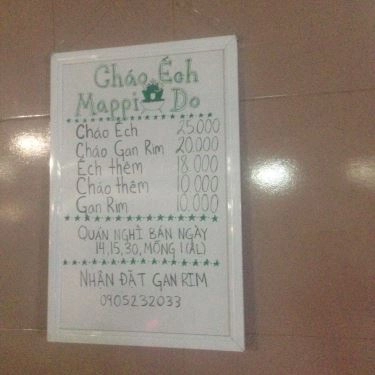 Cháo Ếch
Mappi Do
Cháo Ếch 25.000
Cháo Gan Rim 20.000
Ếch thêm 18.000
Cháo thêm 10.000
Gan Rim 10.000
QUÁN NGHỈ BÁN NGÀY
14,15,30, MỒNG 1 (ÂL)
NHẬN ĐẶT GAN RIM
0905232033